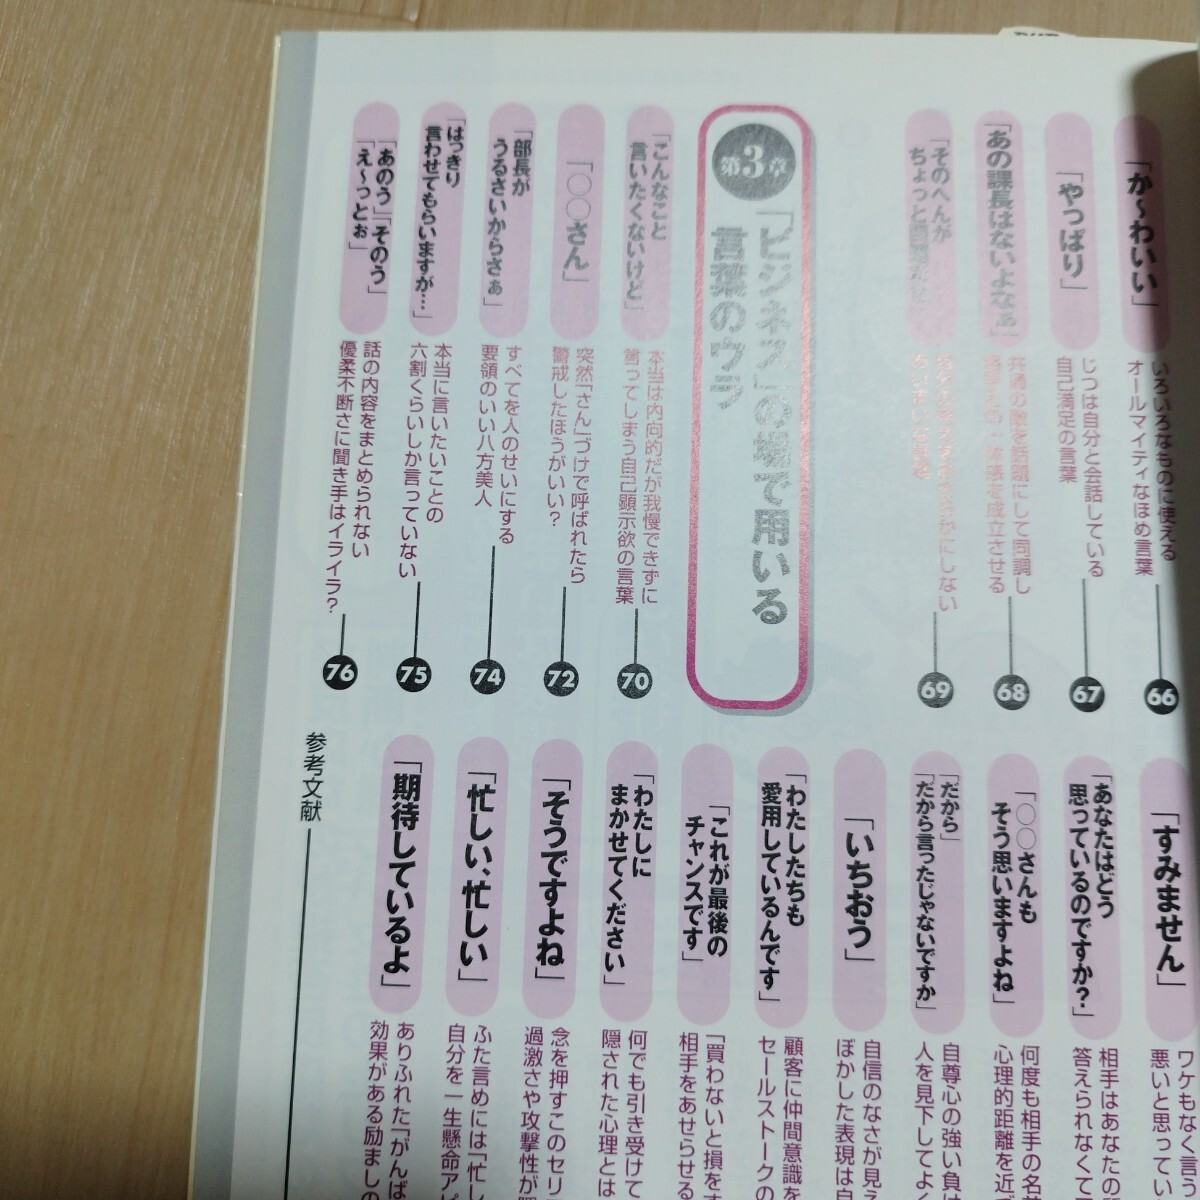 「か～わいい」
いろいろなものに使える
オールマイティなほめ言葉
66
「やっぱり」
じつは自分と会話している
自己満足の言葉
67
「あの課長はないよなぁ」
共通の敵を話題にして同調し
を成立させる
68
「そのへんが
ちょっと
かにしない
69
第3章
「ビジネス」の場で用いる
言葉のウラ
「こんなこと
言いたくないけど」
本当は内向的だが我慢できずに
言ってしまう自己顕示欲の言葉
70
「○○さん」
突然「さん」づけで呼ばれたら
警戒したほうがいい?
72
「部長が
うるさいからさぁ」
すべてを人のせいにする
要領のいい八方美人
74
「はっきり
言わせてもらいますが…」
本当に言いたいことの
六割くらいしか言っていない
75
「あのう」「そのう」
「え～っとぉ」
話の内容をまとめられない
優柔不断さに聞き手はイライラ?
76
「すみません」
ワケもなく言う
悪いと思ってい
「あなたはどう
思っているのですか?」
相手はあなたの
答えられなくて
「○○さんも
そう思いますよね」
何度も相手の名
心理的距離を近
「だから」
「だから言ったじゃないですか」
自尊心の強い負
人を見下してよく
「いちおう」
自信のなさが見え
ぼかした表現は自
「わたしたちも
愛用しているんです」
顧客に仲間意識を
セールストークの
「これが最後の
チャンスです」
「買わないと損をす
相手をあせらせる
「わたしに
まかせてください」
何でも引き受けて
隠された心理とは
「そうですよね」
念を押すこのセリ
過激さや攻撃性が
「忙しい、忙しい」
ふた言めには「忙し
自分を一生懸命アピ
「期待しているよ」
ありふれた「がんば
効果がある励ましの
参考文献